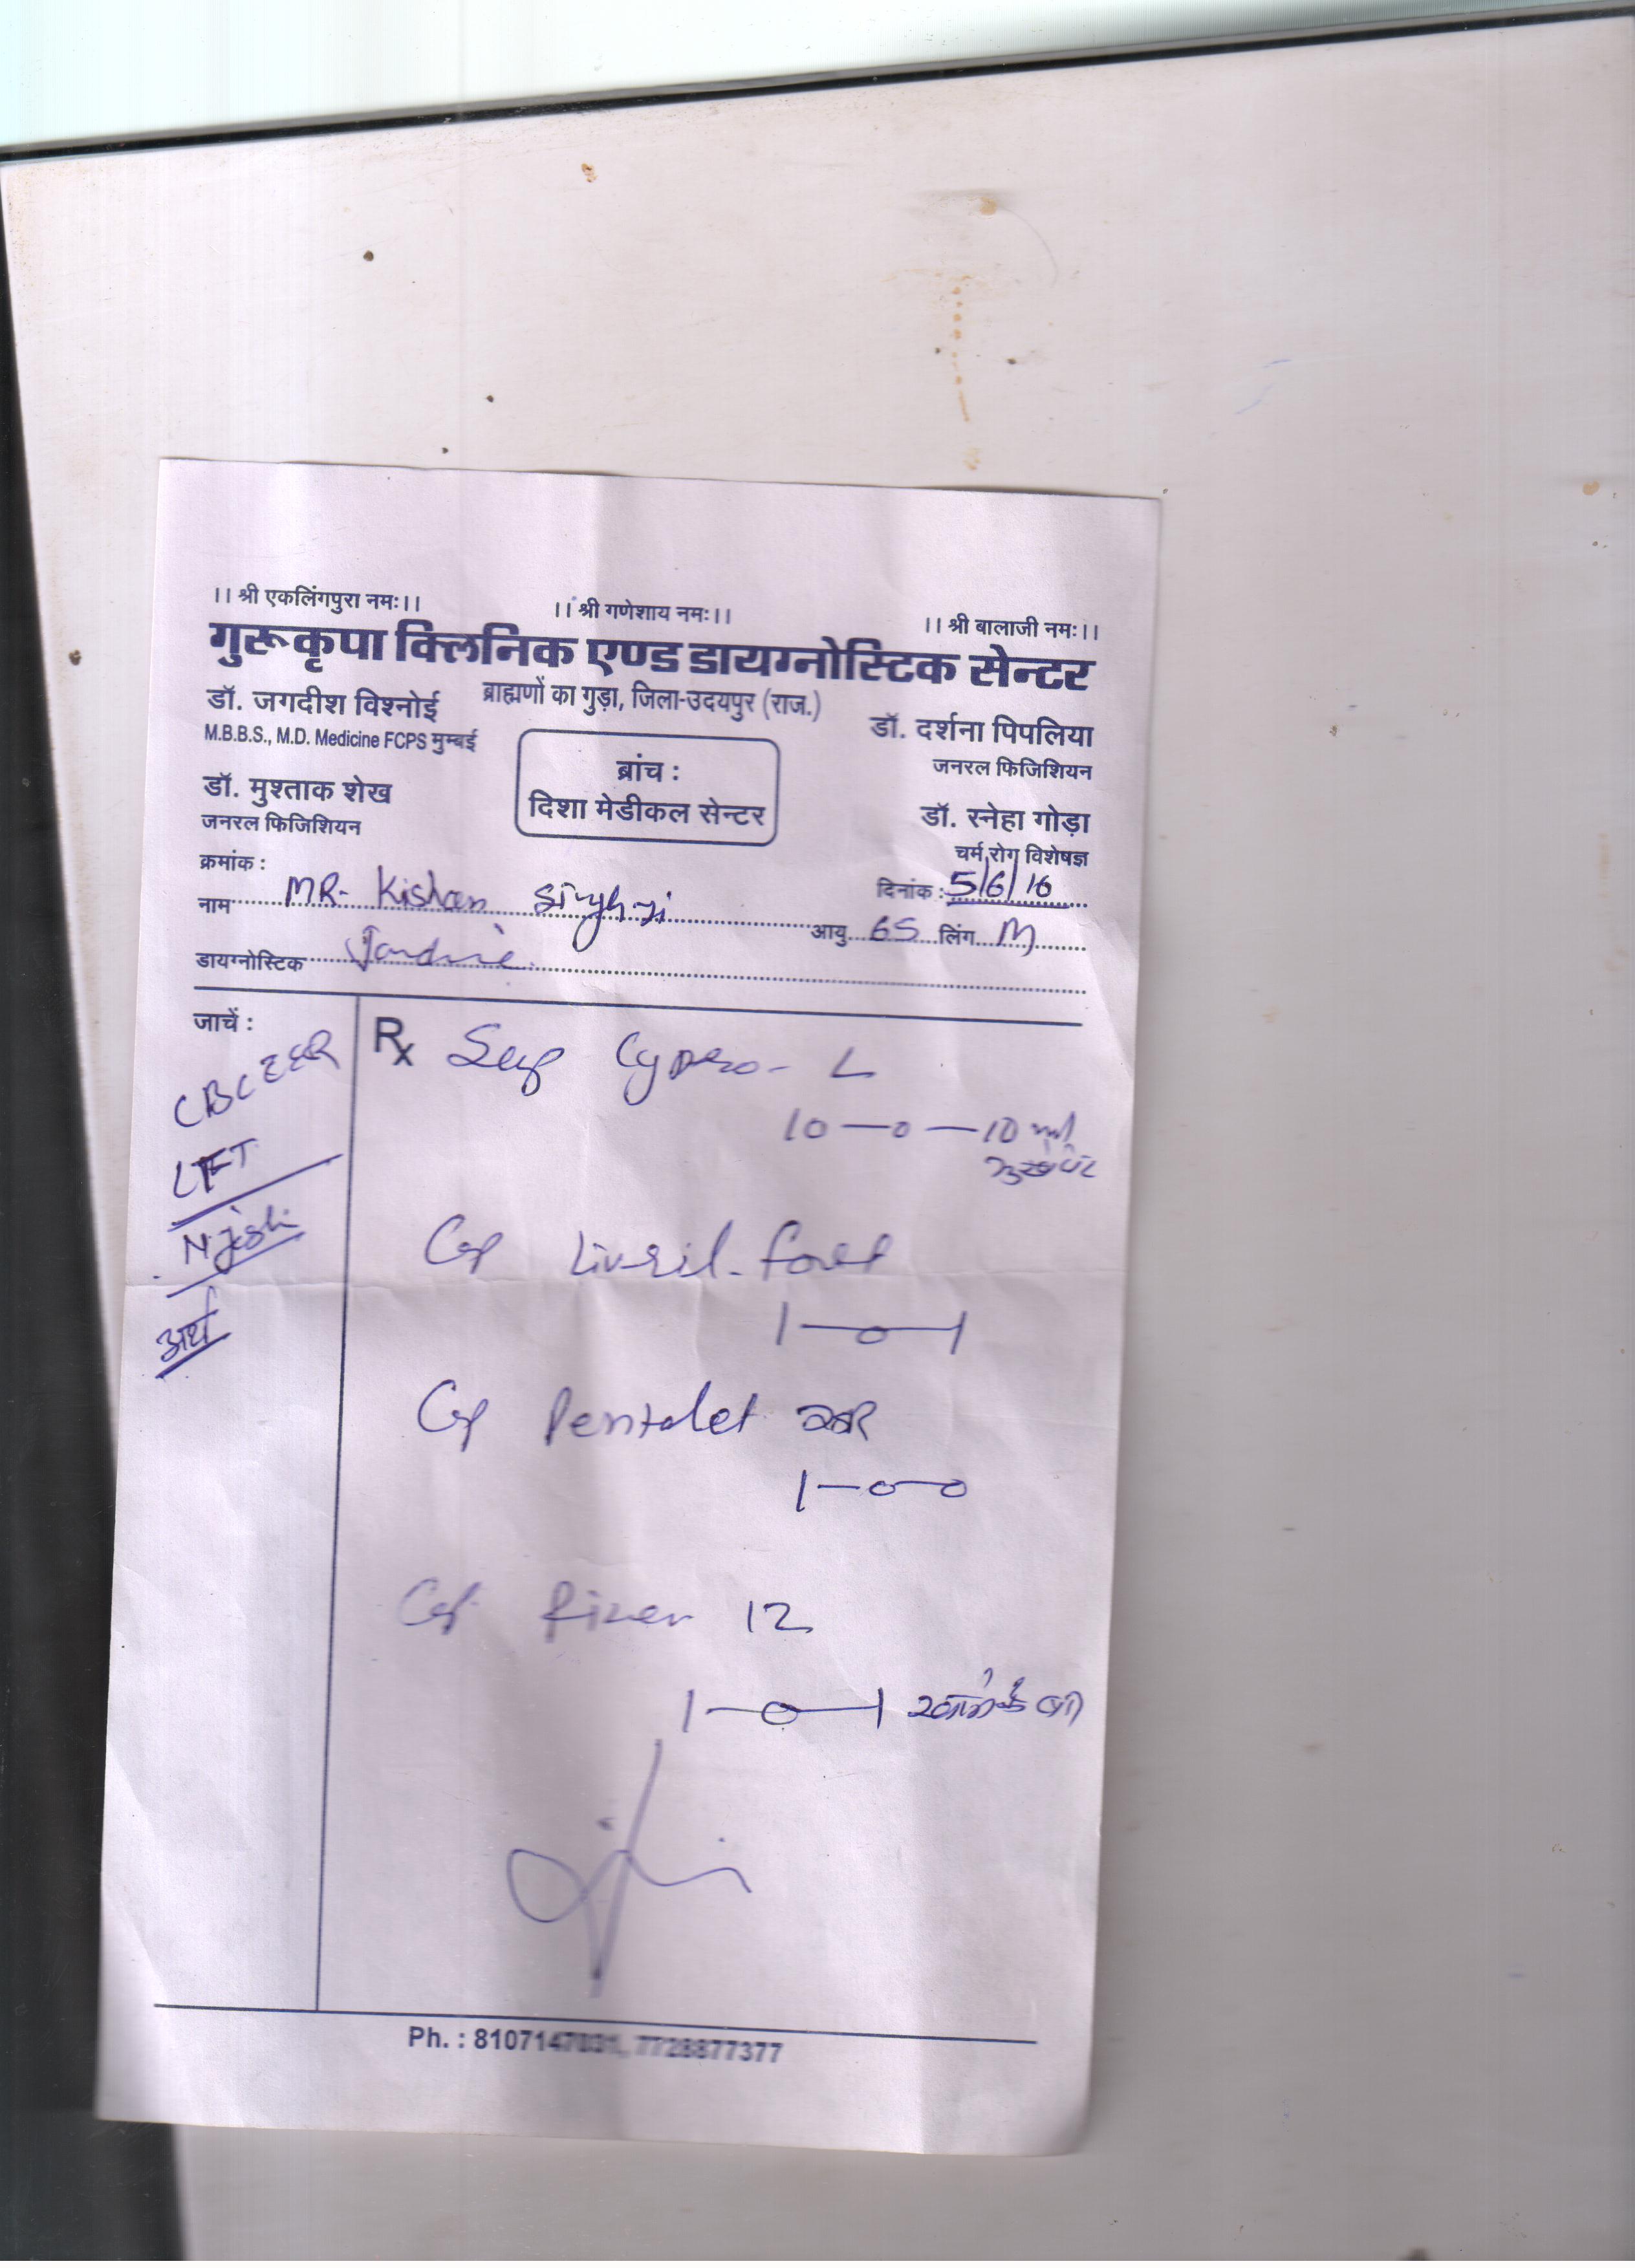 ।। श्री एकलिंगपुरा नमः।। ।। श्री गणेशाय नमः।। ।। श्री बालाजी नमः।।
गुरूकृपा क्लिनिक एण्ड डायग्नोस्टिक सेन्टर
ब्राह्मणों का गुड़ा, जिला-उदयपुर (राज.)
डॉ. जगदीश विश्नोई
M.B.B.S., M.D. Medicine FCPS मुम्बई
डॉ. मुश्ताक शेख
जनरल फिजिशियन
ब्रांच :
दिशा मेडीकल सेन्टर
डॉ. दर्शना पिपलिया
जनरल फिजिशियन
डॉ. स्नेहा गोड़ा
चर्म रोग विशेषज्ञ
क्रमांक :
दिनांक : 5/6/16
नाम MR- Kishan Singh ji आयु 65 लिंग M
डायग्नोस्टिक
जाचें :
CBC ESR
LFT
Rx Syp Cypro- L
10 — 0 — 10 ml
Cap Livril. fort
1 — 0 — 1
Cap Pentalet
1 — 0 — 0
Cap 12
1 — 0 — 1 खाने के बाद
Ph. : 8107147031, 7728877377